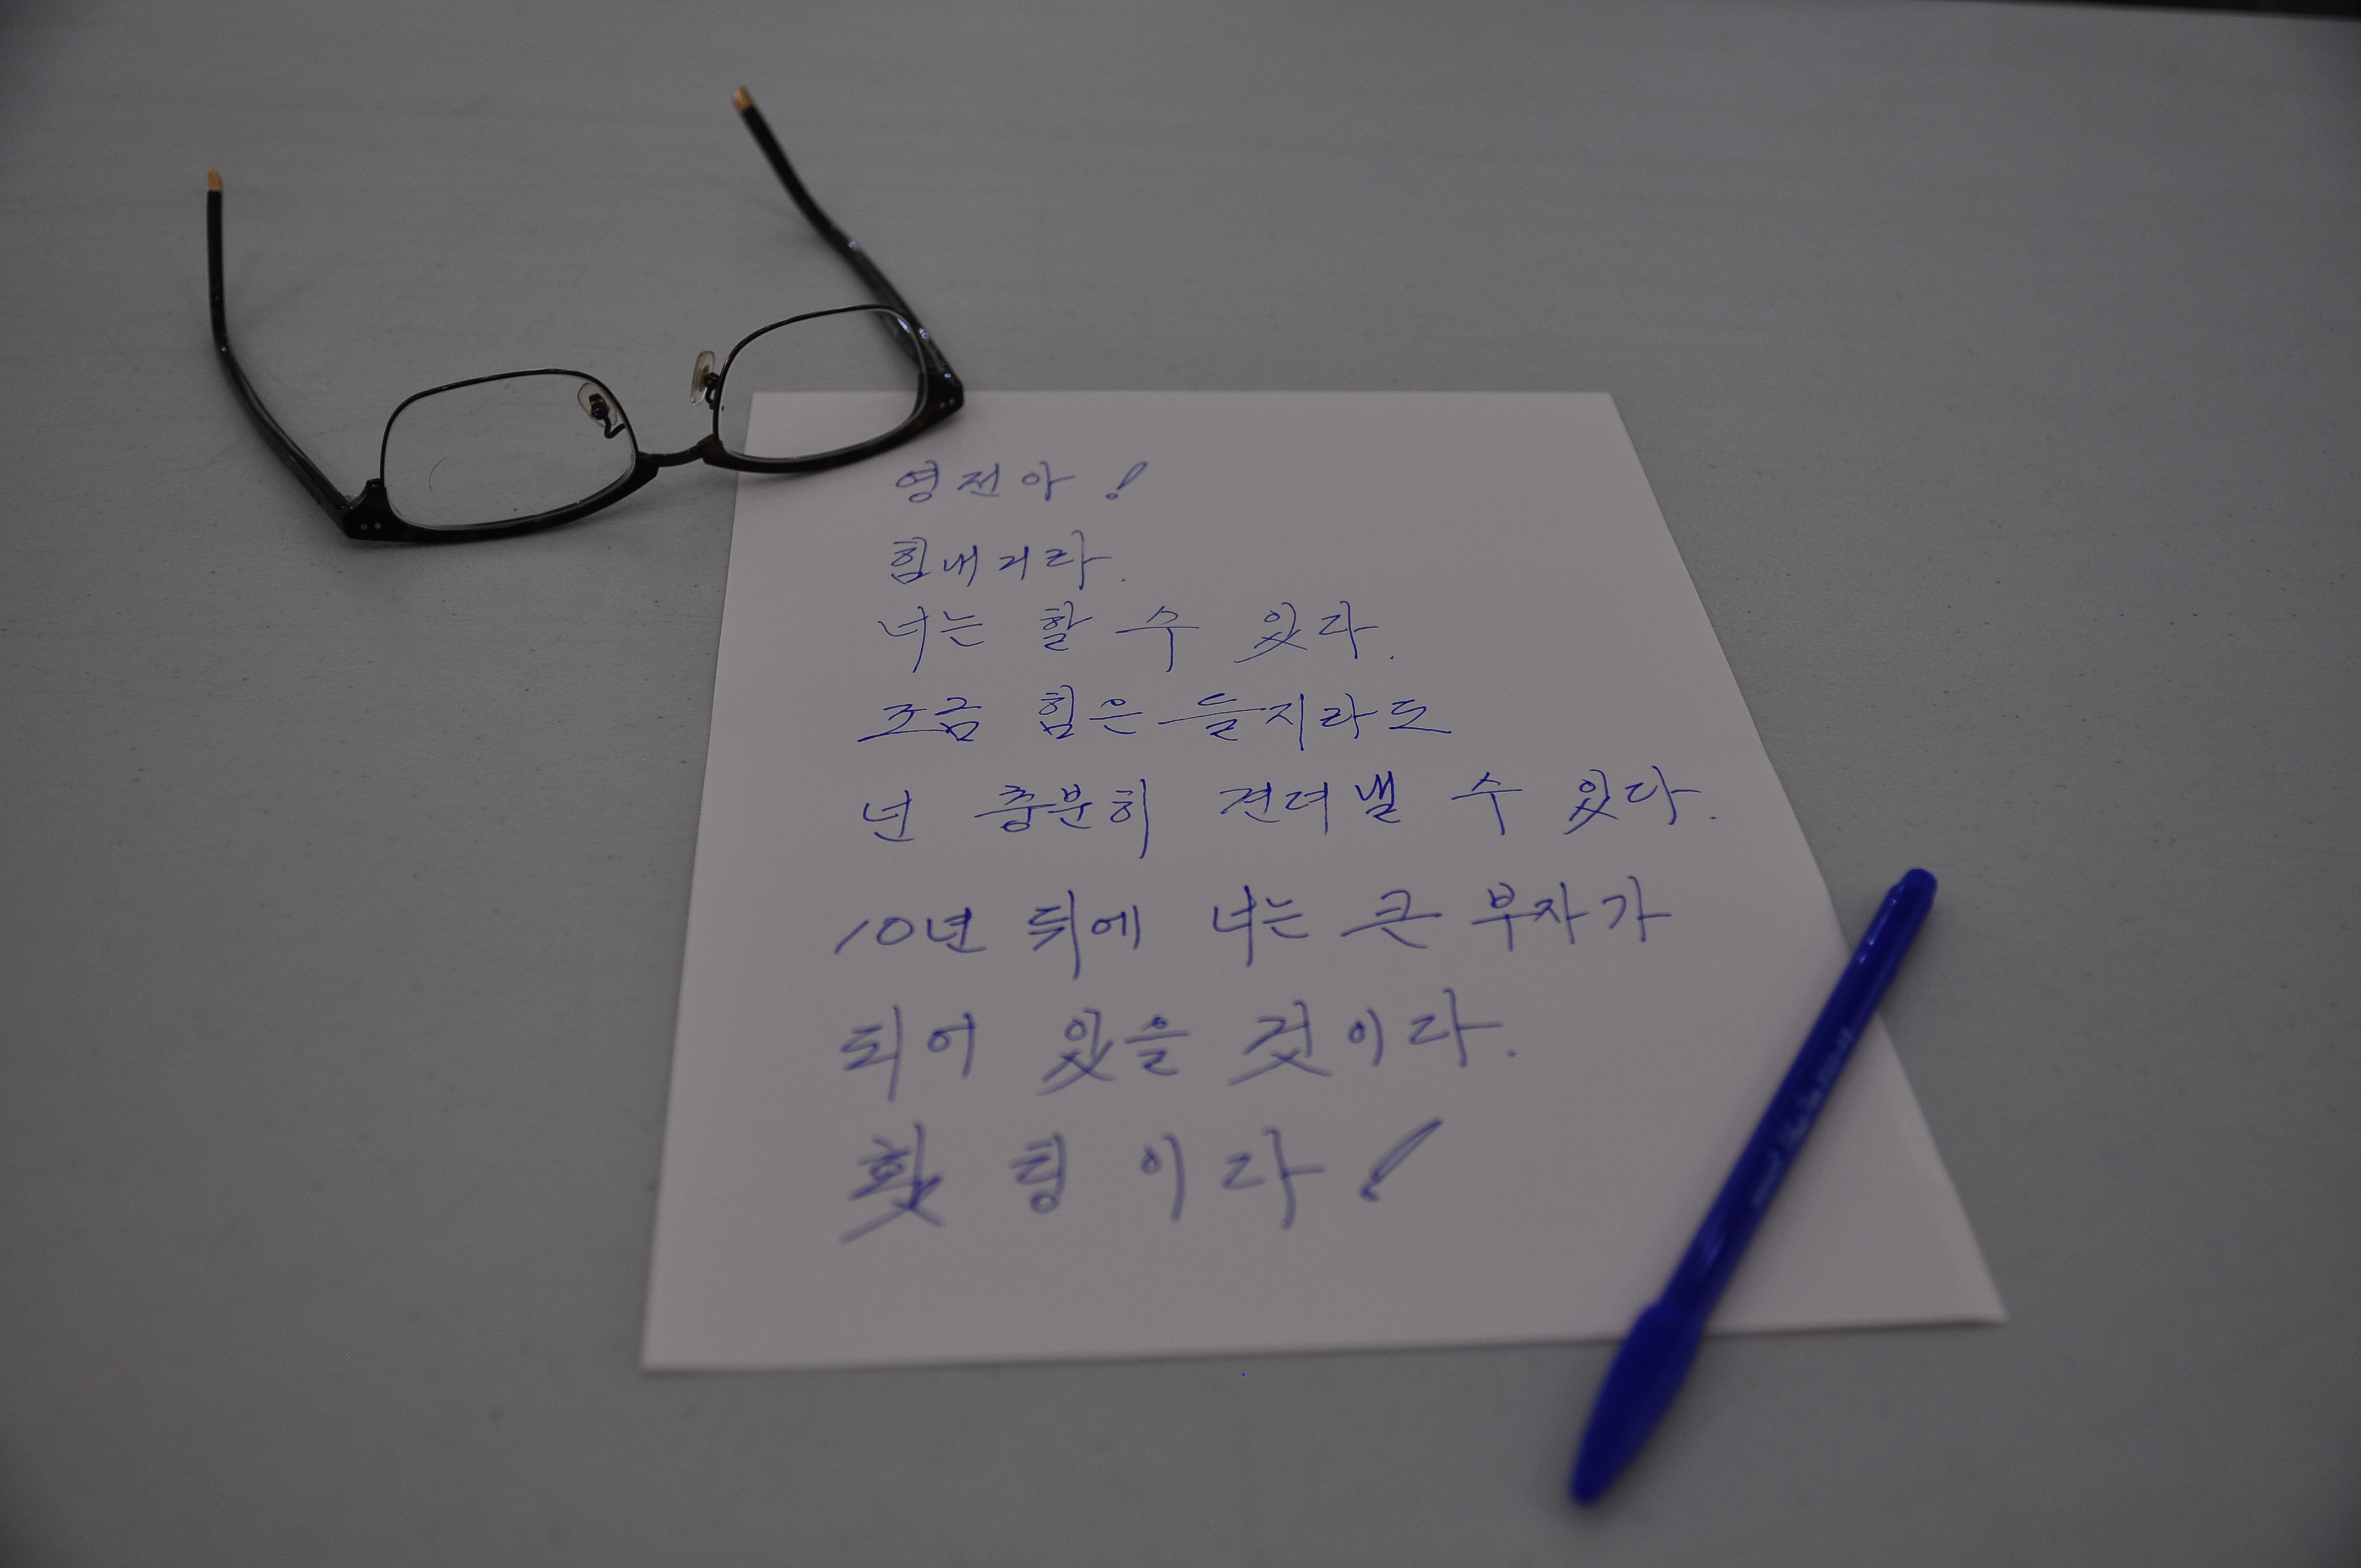 영전아!
힘내거라.
너는 할 수 있다.
조금 힘은 들지라도
넌 충분히 견뎌낼 수 있다.
10년 뒤에 너는 큰 부자가
되어 있을 것이다.
홧팅이다!